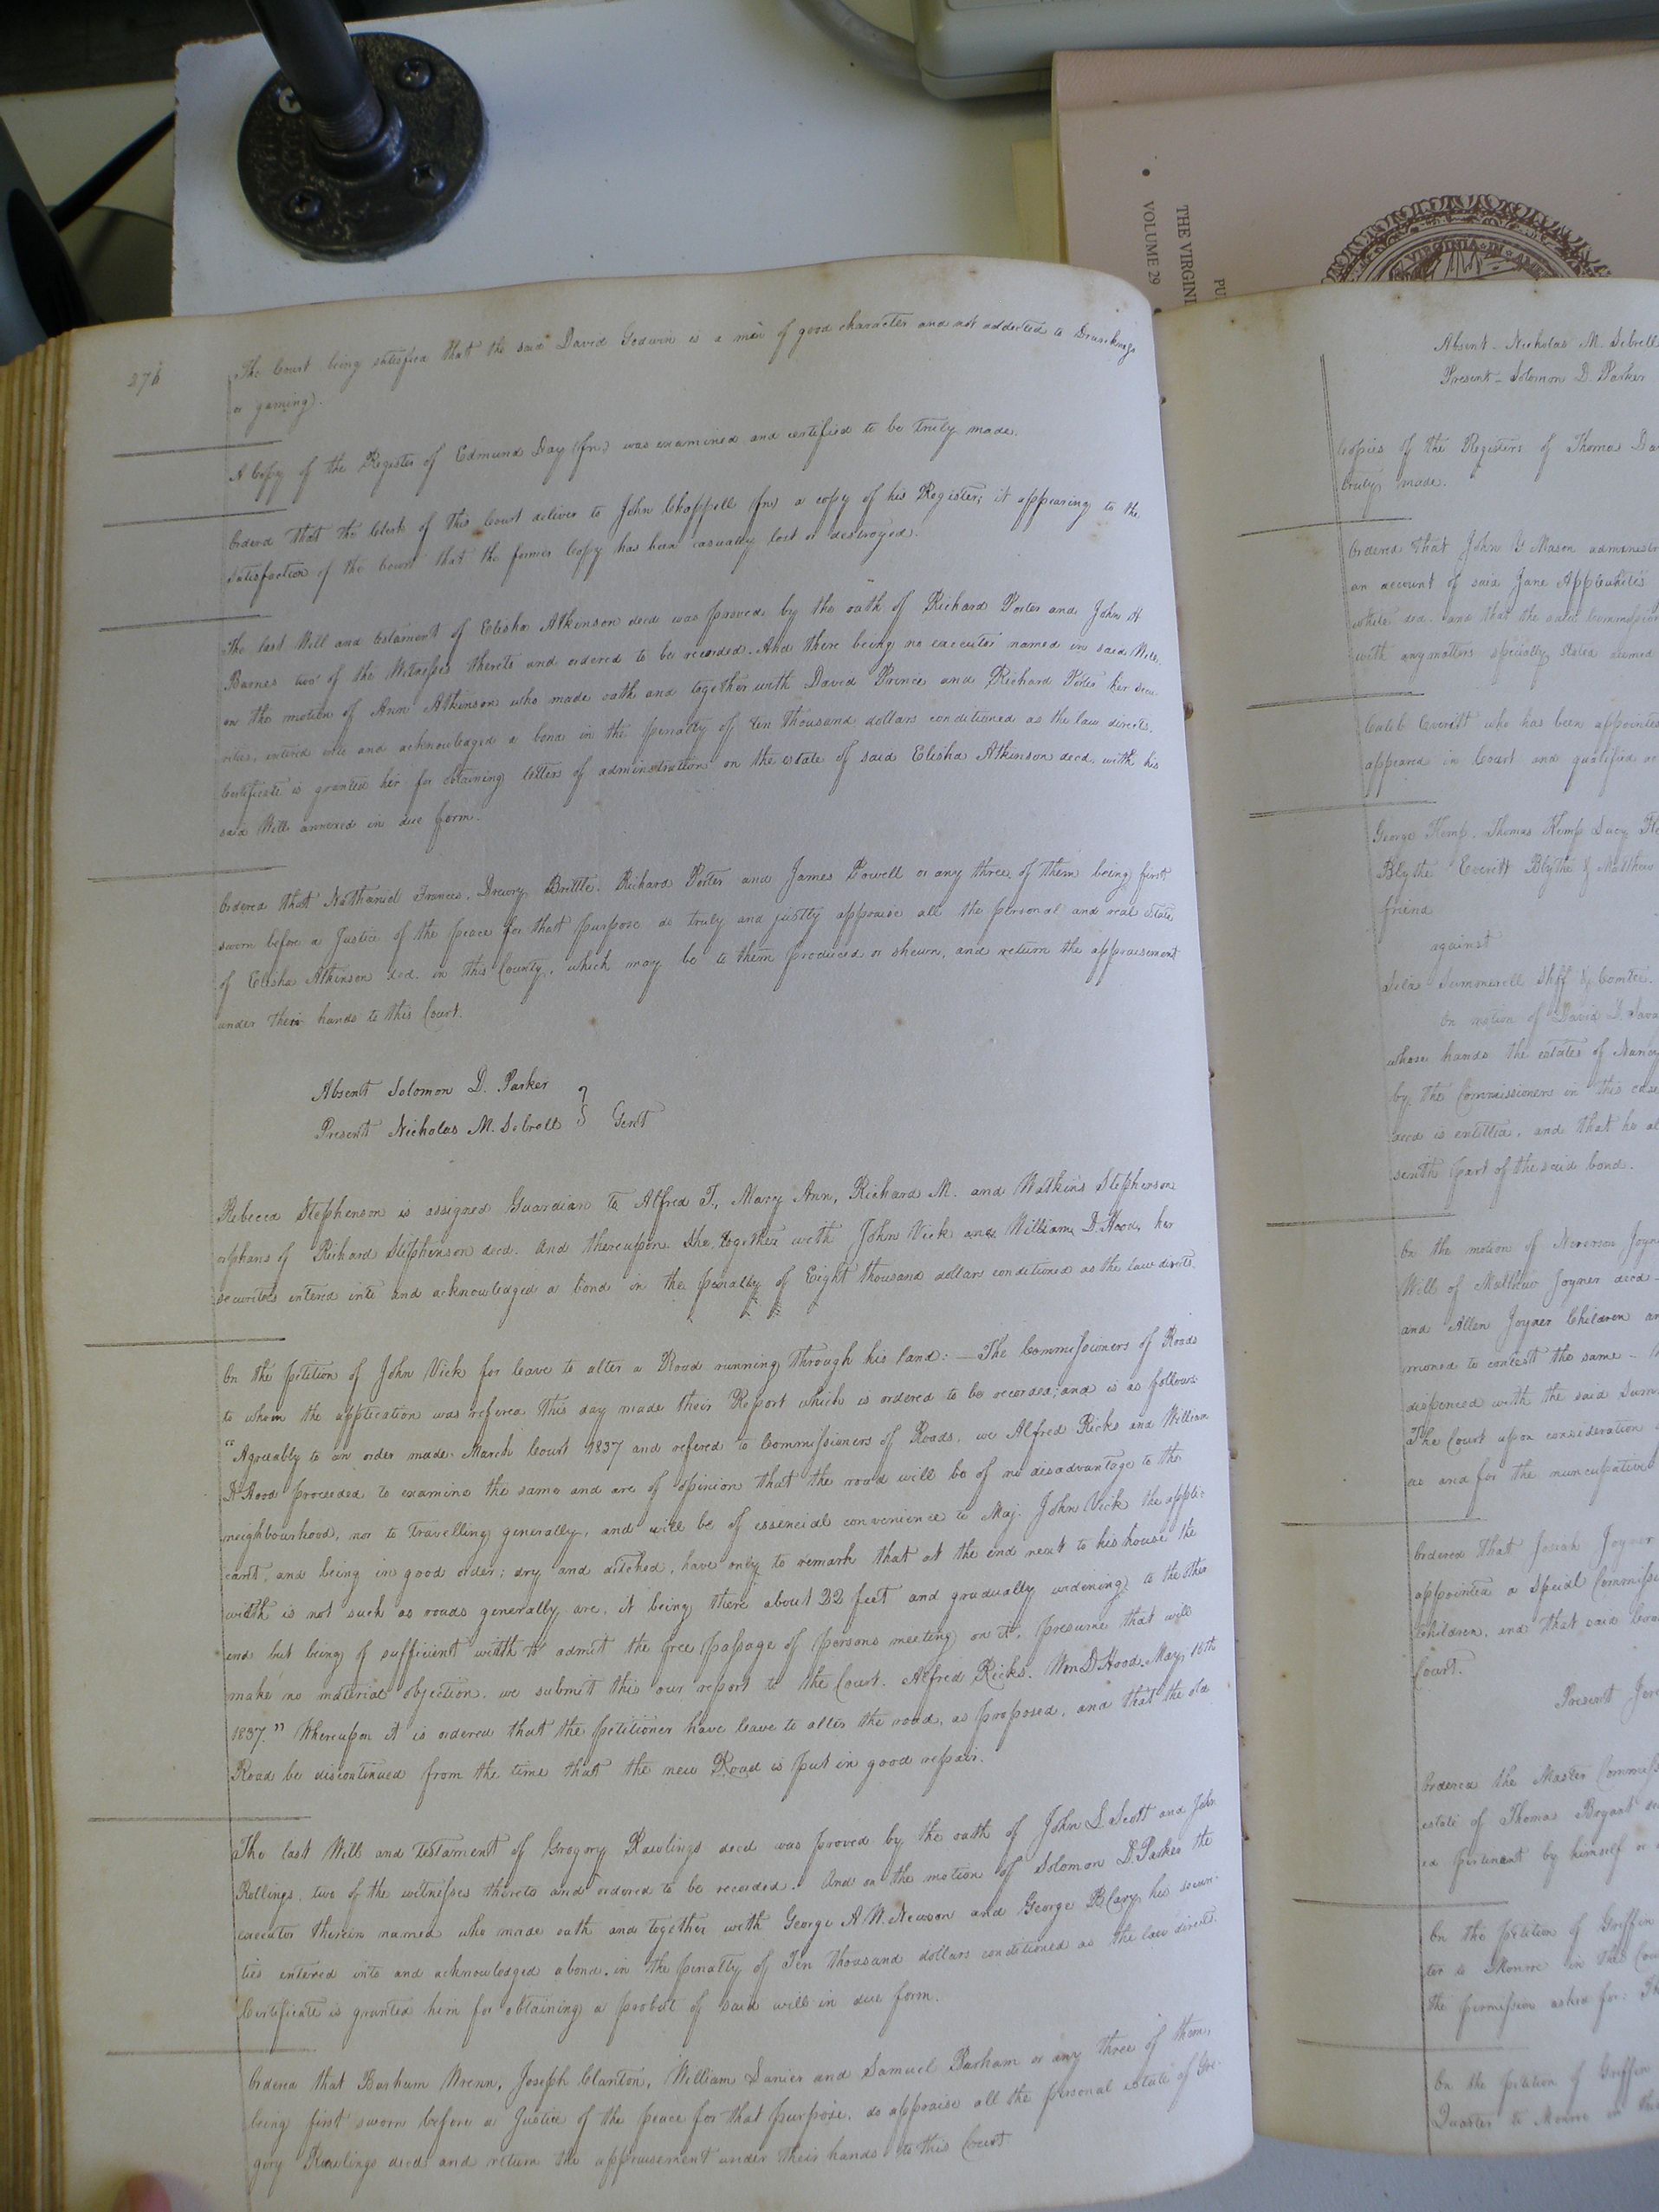 THE VIRGINI
VOLUME 29
PU
VIRGINIA IN AME
276
The Court being satisfied that the said David Godwin is a man of good character and not addicted to Drunkenness
or gaming).
A Copy of the Register of Edmund Day (fn) was examined and certified to be truly made.
Ordered that the Clerk of this Court deliver to John Chappell (fn) a copy of his Register, it appearing to the
satisfaction of the Court that the former Copy has been casually lost or destroyed.
The last Will and testament of Elisha Atkinson decd was proved by the oath of Richard Porter and John H
Barnes two of the Witnesses thereto and ordered to be recorded. And there being no executor named in said Will,
on the motion of Ann Atkinson who made oath and together with David Prince and Richard Porter her secu-
rities, entered into and acknowledged a bond in the penalty of ten thousand dollars conditioned as the law directs.
Certificate is granted her for obtaining letters of administration on the estate of said Elisha Atkinson decd. with his
said Will annexed in due form.
Ordered that Nathaniel Francis, Drewry Brittle, Richard Porter and James Powell or any three of them being first
sworn before a Justice of the peace for that purpose do truly and justly appraise all the personal and real estate
of Elisha Atkinson decd. in this County, which may be to them produced or shewn, and return the appraisement
under their hands to this Court.
Absent Solomon D. Parker
Present Nicholas M. Sebrell } Gent
Rebecca Stephenson is assigned Guardian to Alfred T., Mary Ann, Richard M. and Watkins Stephenson
orphans of Richard Stephenson decd. And thereupon She, together with John Vick and William D. Hood, her
securities entered into and acknowledged a bond in the penalty of Eight thousand dollars conditioned as the law directs.
On the petition of John Vick for leave to alter a Road running through his land: — The Commissioners of Roads
to whom the application was refered this day made their Report which is ordered to be recorded; and is as follows
"Agreeably to an order made March Court 1837 and refered to Commissioners of Roads, we Alfred Ricks and William
D Hood proceeded to examine the same and are of opinion that the road will be of no disadvantage to the
neighbourhood, nor to travelling generally, and will be of essencial convenience to Maj. John Vick the appli-
cant, and being in good order; dry and ditched, have only to remark that at the end next to his house the
width is not such as roads generally are, it being there about 22 feet and gradually widening to the other
end but being of sufficient width to admit the free passage of persons meeting on it, presume that will
make no material objection. we submit this our report to the Court. Alfred Ricks. Wm D Hood. May 16th
1837." Whereupon it is ordered that the petitioner have leave to alter the road, as proposed, and that the old
Road be discontinued from the time that the new Road is put in good repair.
The last Will and Testament of Gregory Rawlings decd was proved by the oath of John S. Scott and John
Rollings, two of the witnesses thereto and ordered to be recorded. And on the motion of Solomon D. Parker the
executor therein named who made oath and together with George A. W. Newson and George B Cary his securi-
ties entered into and acknowledged a bond, in the penalty of Ten thousand dollars conditioned as the law directs.
Certificate is granted him for obtaining a probat of said will in due form.
Ordered that Barham Wrenn, Joseph Clanton, William Lanier and Samuel Parham or any three of them,
being first sworn before a Justice of the peace for that purpose, do appraise all the personal estate of Gre-
gory Rawlings decd and return the appraisement under their hands to this Court
Absent - Nicholas M. Sebrell
Present - Solomon D. Parker
Copies of the Registers of Thomas
truly made.
Ordered that John Y Mason administr
an account of said Jane Applewhite's
white decd. and that the said Commissioner
with any matters specially stated
Caleb Everitt who has been appointed
appeared in Court and qualified
George Kemp, Thomas Kemp Lucy
Blythe Everitt Blythe & Matthew
friend
against
Silas Summerell Shff & Comtee.
On motion of David
whose hands the estates of Nancy
by the Commissioners in this case
decd is entitled, and that he
seventh part of the said bond.
On the motion of Neverson Joyner
Will of Matthew Joyner decd
and Allen Joyner Children
moned to contest the same
dispenced with the said
The Court upon consideration
as and for the nuncupative
Ordered that Josiah Joyner
appointed a Special Commissi
Children, and that said
Court.
Present
Ordered the Master Commiss
estate of Thomas Bryant
ed pertinent by himself or
On the petition of Griffin
tor to Monroe in this Cou
the permission asked for:
On the petition of Griffin
Quarter to Monroe in this